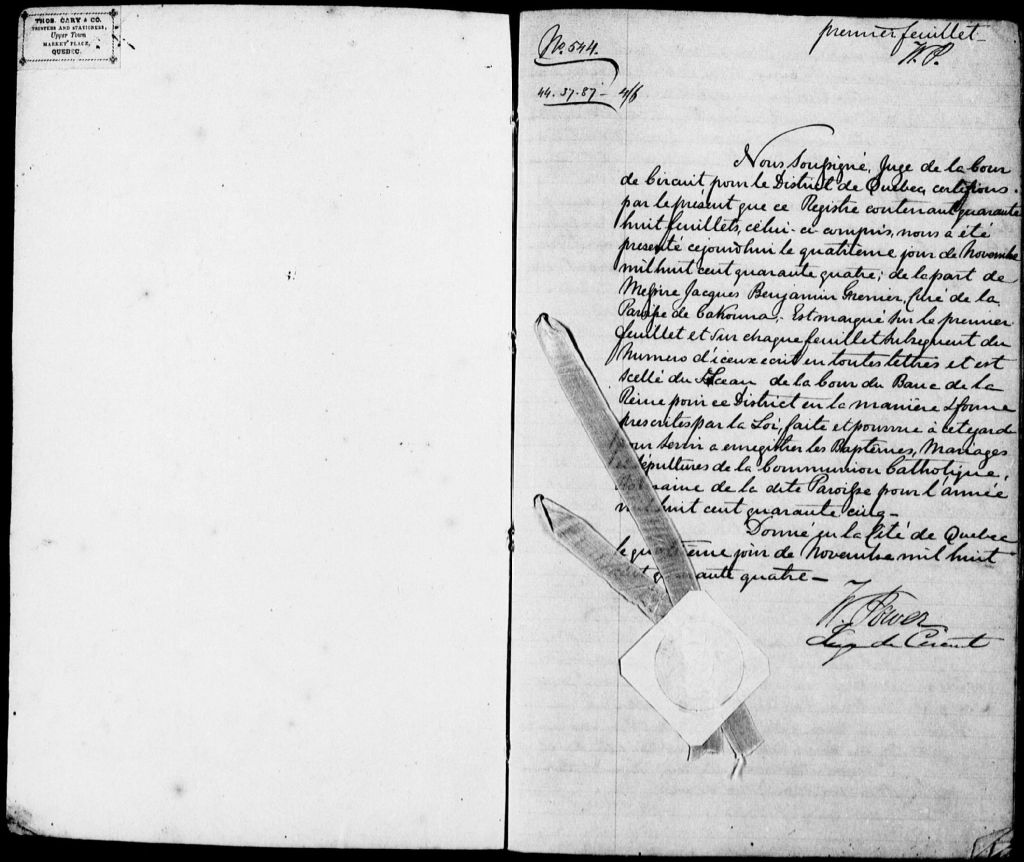 THOS. CARY & CO.
PRINTERS AND STATIONERS,
Upper Town
MARKET PLACE,
QUEBEC.
premier feuillet
W. P.
No. 544.
44. 37. 87 -
Nous Soussigné, Juge de la Cour
de Circuit pour le District de Quebec, certifions
par le présent que ce Registre contenant quarante
huit feuillets, celui-ci compris, nous a été
presenté cejourdhui le quatrième jour de Novembre
mil huit cent quarante quatre; de la part de
Messire Jacques Benjamin Grenier, Curé de la
Paroisse de Cakouna, - Est marqué sur le premier
feuillet et sur chaque feuillet subsequent du
Numero d'iceux ecrit en toutes lettres et est
Scellé du Sceau de la Cour du Banc de la
Reine pour ce District en la manière & forme
prescrites par la Loi, faite et pourvue à cet egard
our servir a enregistrer les Baptêmes, Mariages
Sépultures de la Communion Catholique,
maine de la dite Paroisse pour l'année
mil huit cent quarante cinq -
Donné en la Cité de Quebec
le qua ième jour de Novembre mil huit
t q ante quatre -
W. Power
Juge de Circuit